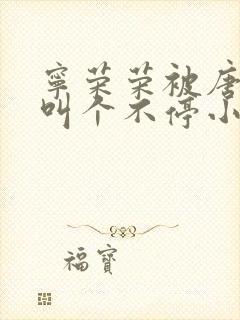 寧荣荣被唐
叫个不停小
福寶